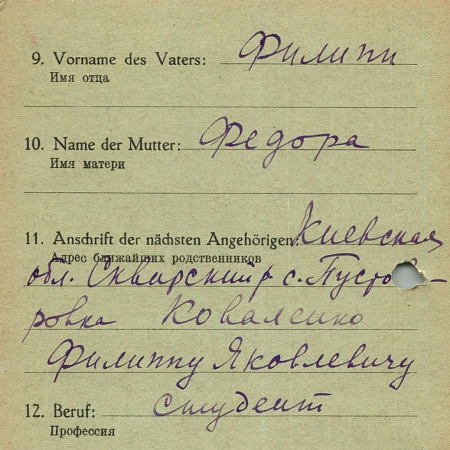 9. Vorname des Vaters: Филипп
Имя отца
10. Name der Mutter: Федора
Имя матери
11. Anschrift der nächsten Angehörigen: Киевская
Адрес ближайших родственников
обл. Сквирский р с. Пусто-
ровка Коваленко
Филиппу Яковлевичу
12. Beruf: студент
Профессия